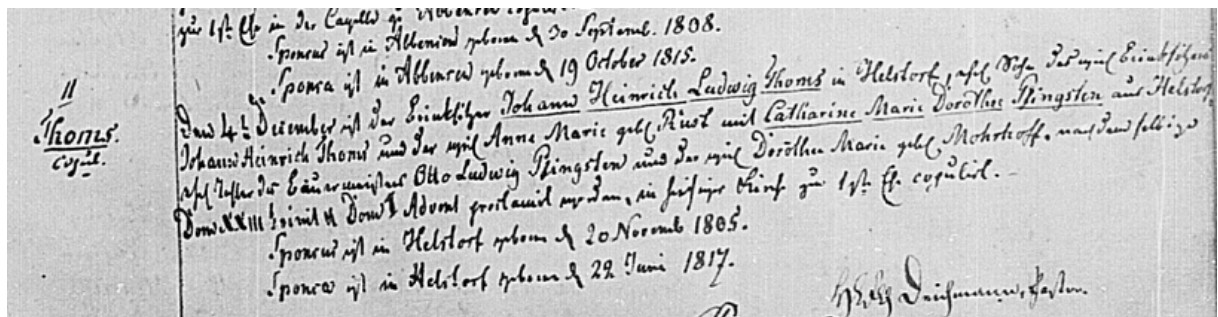 zur 1sten Ehe in der Capelle zu Abbensen copulirt.
Sponsus ist in Abbensen geboren d 30 Septemb. 1808.
Sponsa ist in Abbensen geboren d 19 October 1815.
11
Thoms.
copul.
Den 4ten December ist der Brinksitzer Johann Heinrich Ludwig Thoms in Helstorf, ehel Sohn des weil Brinksitzers
Johann Heinrich Thoms und der weil Anne Marie gebl. Rust mit Catharine Marie Dorothee Pfingsten aus Helstorf,
ehel Tochter des Bauermeisters Otto Ludwig Pfingsten und der weil Dorothee Marie gebl. Mohrhoff, nachdem selbige
Dom XXIII Trinit & Dom I Advent proclamirt worden, in hiesiger Kirche zur 1sten Ehe copulirt. -
Sponsus ist in Helstorf geboren d 20 Novemb 1805.
Sponsa ist in Helstorf geboren d 22 Juni 1817.
Deichmann, Pastor.